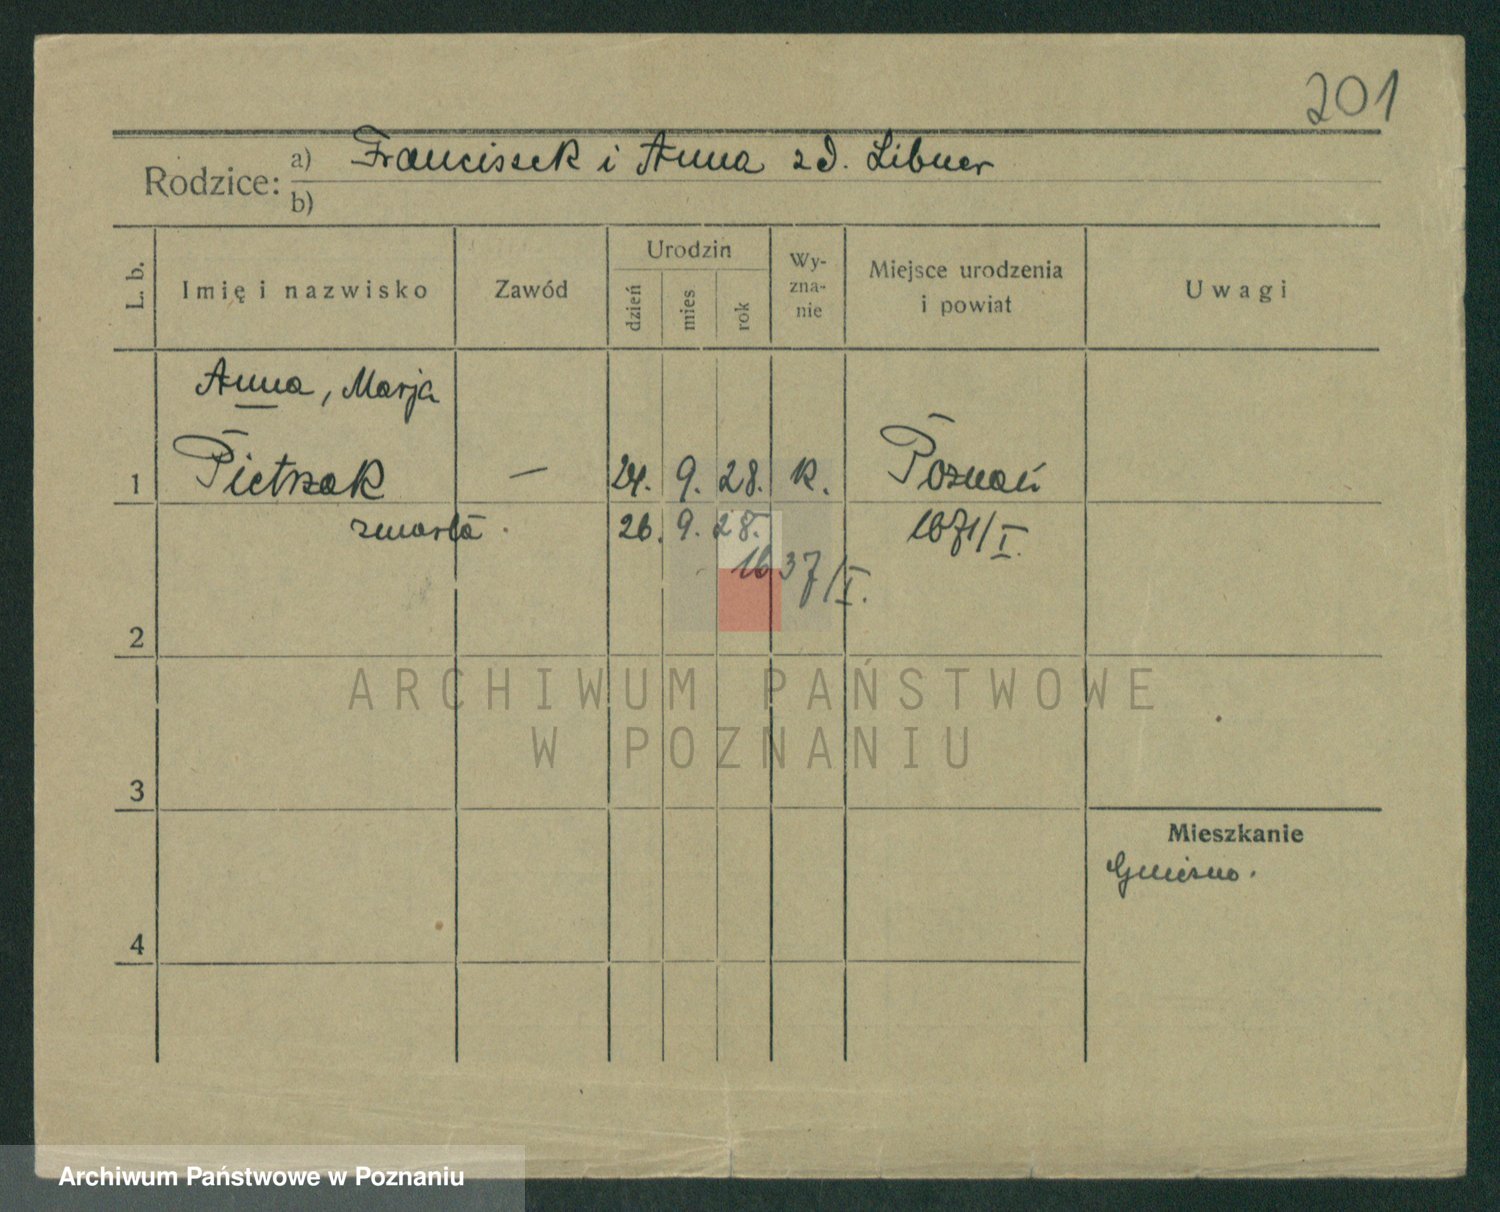 201
Rodzice: a) Franciszek i Anna zd. Libner
b)
L. b. Imię i nazwisko Zawód Urodzin dzień mies rok Wy-zna-nie Miejsce urodzenia i powiat Uwagi
Anna, Marja
1 Pietrzak — 24. 9. 28. k. Poznań
zmarła. 26. 9. 28. 1671/I.
1637/I.
2
ARCHIWUM PAŃSTWOWE
W POZNANIU
3
Mieszkanie
Gniezno.
4
Archiwum Państwowe w Poznaniu